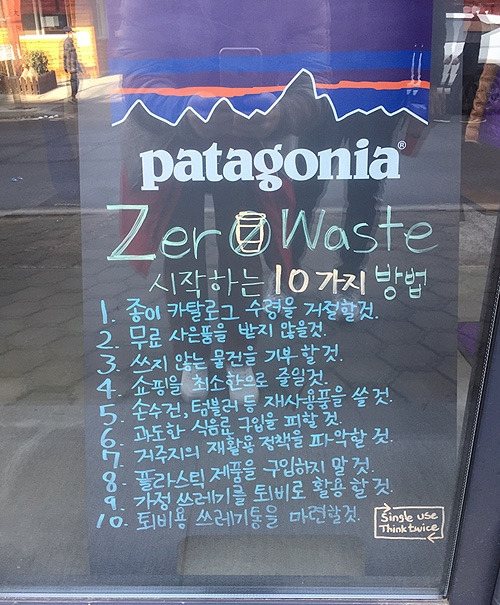 patagonia®
Zero Waste
시작하는 10가지 방법
1. 종이 카탈로그 수령을 거절할것.
2. 무료 사은품을 받지 않을것.
3. 쓰지 않는 물건을 기부 할 것.
4. 쇼핑을 최소한으로 줄일것.
5. 손수건, 텀블러 등 재사용품을 쓸 것.
6. 과도한 식음료 구입을 피할 것.
7. 거주지의 재활용 정책을 파악할 것.
8. 플라스틱 제품을 구입하지 말 것.
9. 가정 쓰레기를 퇴비로 활용 할 것.
10. 퇴비용 쓰레기통을 마련할것.
Single use
Think twice